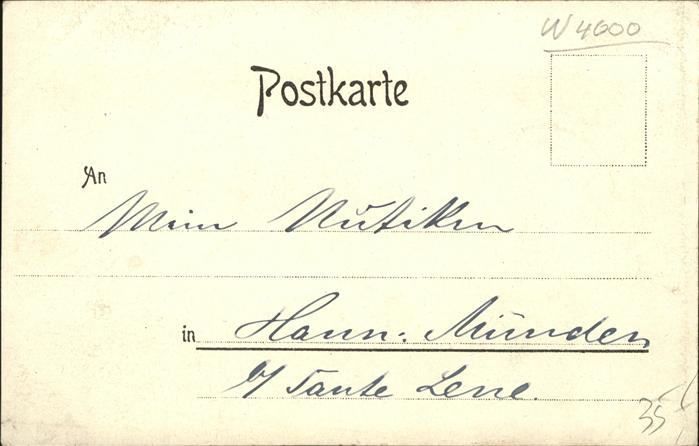 W 4600
Postkarte
An
Mein
in Hann: Münden
b/ Tante Lene.
35